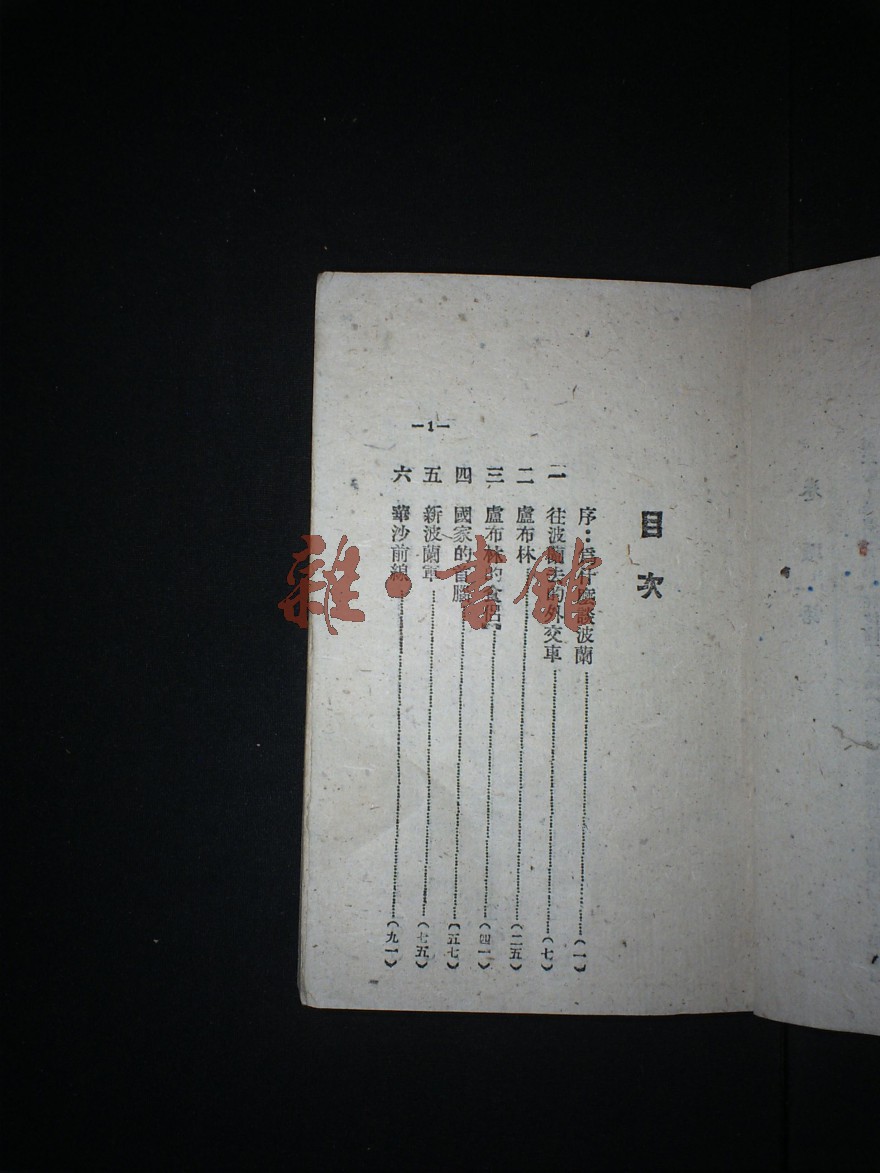 目次
序：爲什麽談波蘭……(一)
一 往波蘭去的外交車……(七)
二 盧布林……(二五)
三 盧布林的
四 國家的首腦……(五七)
五 新波蘭軍……(七五)
六 華沙前線……(九一)
—1—
雜·書館